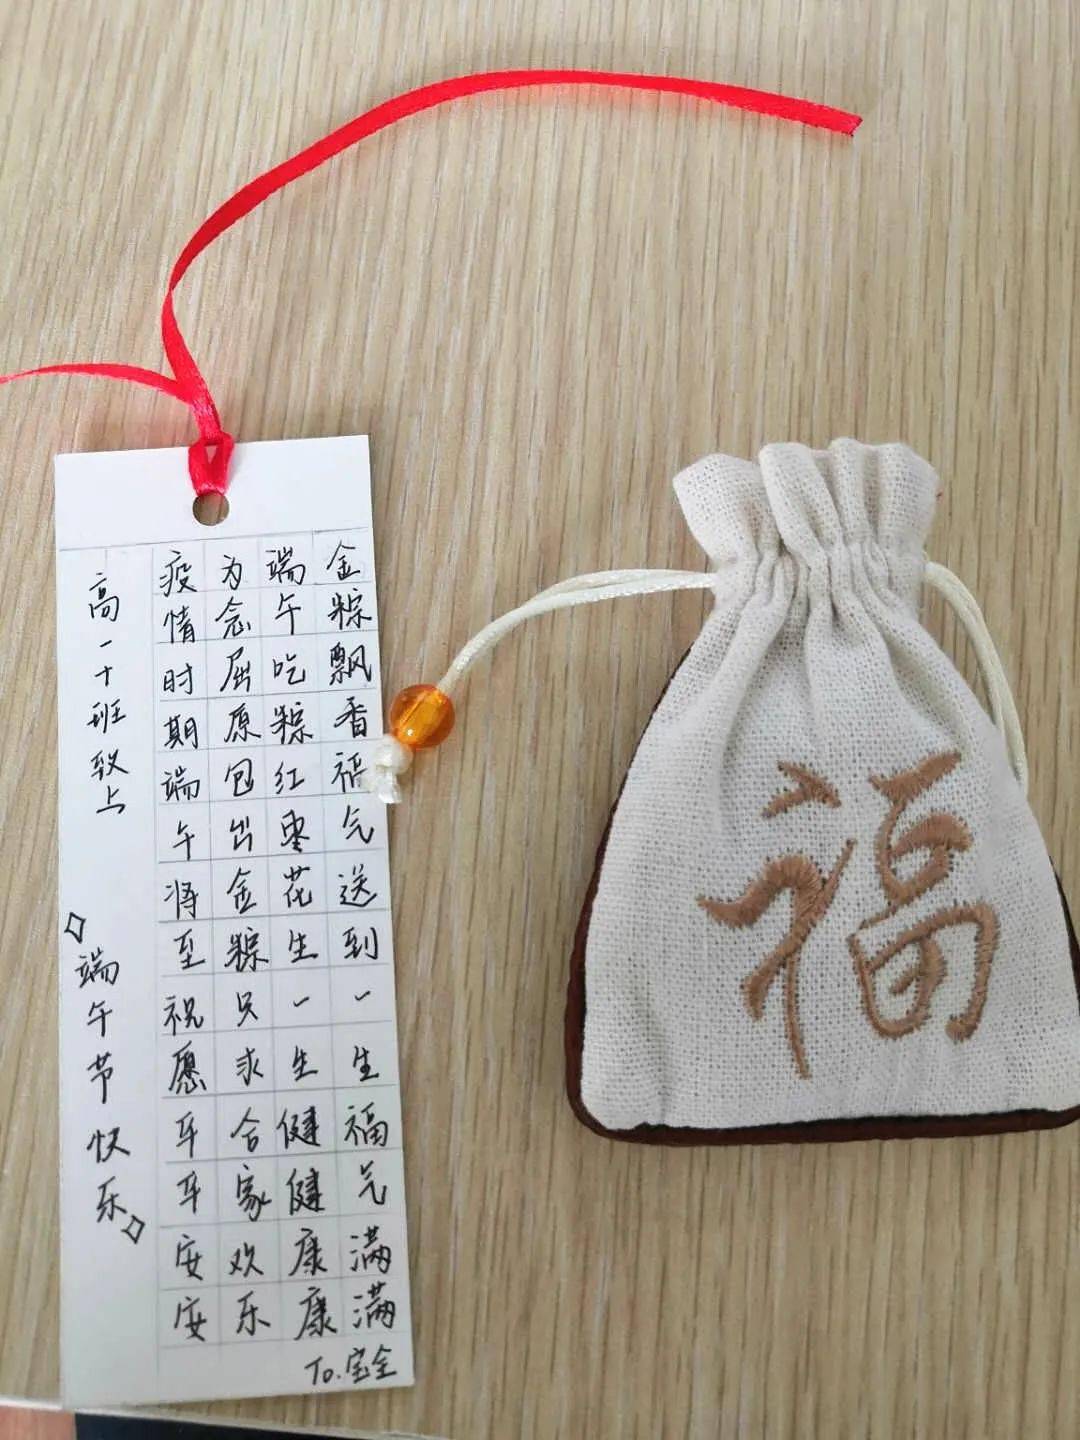 金粽飘香福气送到一生福气满满
端午吃粽红枣花生一生健健康康
为念屈原包出金粽只求合家欢乐
疫情时期端午将至祝愿平平安安
高一十班致上
◇端午节快乐◇
To.宝全
福